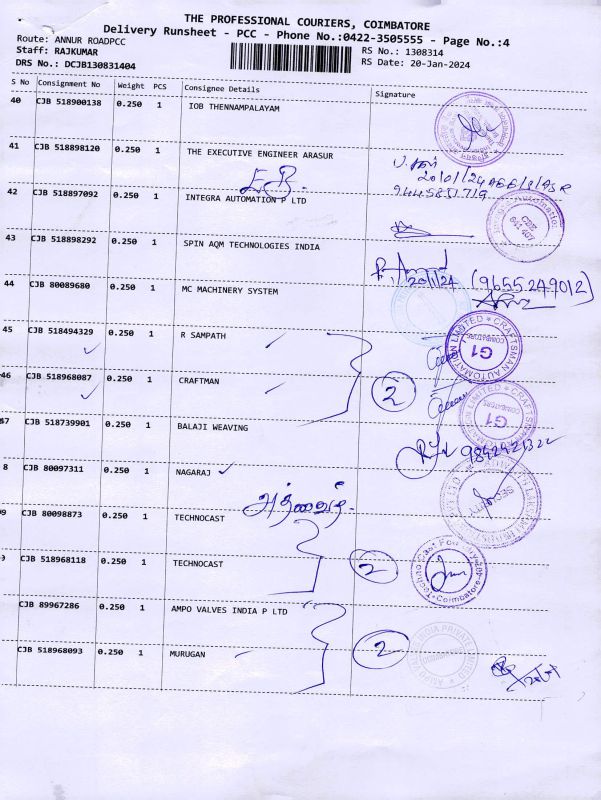 THE PROFESSIONAL COURIERS, COIMBATORE
Delivery Runsheet - PCC - Phone No.:0422-3505555 - Page No.:4
Route: ANNUR ROADPCC
RS No.: 1308314
Staff: RAJKUMAR
RS Date: 20-Jan-2024
DRS No.: DCJB130831404
S No Consignment No Weight PCS Consignee Details Signature
40 CJB 518900138 0.250 1 IOB THENNAMPALAYAM
41 CJB 518898120 0.250 1 THE EXECUTIVE ENGINEER ARASUR
E.B.
20/01/24 AEE/
9445851719
42 CJB 518897092 0.250 1 INTEGRA AUTOMATION P LTD
CBE
641 407
43 CJB 518898292 0.250 1 SPIN AQM TECHNOLOGIES INDIA
20/1/24 (9655249012)
44 CJB 80089680 0.250 1 MC MACHINERY SYSTEM
45 CJB 518494329 0.250 1 R SAMPATH
CRAFTSMAN AUTOMATION LIMITED
COIMBATORE
G1
46 CJB 518968087 0.250 1 CRAFTMAN
2
G1
47 CJB 518739901 0.250 1 BALAJI WEAVING
9842421322
8 CJB 80097311 0.250 1 NAGARAJ
SECURITY
9 CJB 80098873 0.250 1 TECHNOCAST
CJB 518968118 0.250 1 TECHNOCAST
2
Coimbatore
CJB 89967286 0.250 1 AMPO VALVES INDIA P LTD
CJB 518968093 0.250 1 MURUGAN
2